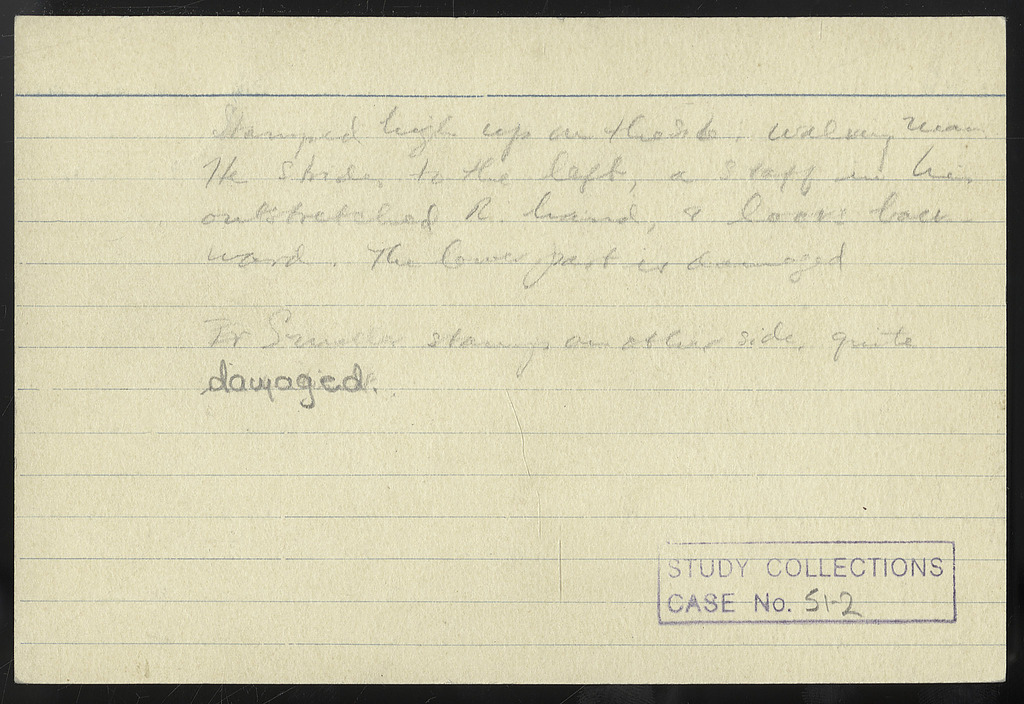 Stamped high up on the side. walking man
He strides to the left, a staff in his
outstretched R. hand, & looks back
ward. The lower part is damaged
Smaller stamp on other side, quite
damaged.
STUDY COLLECTIONS
CASE No. 51-2